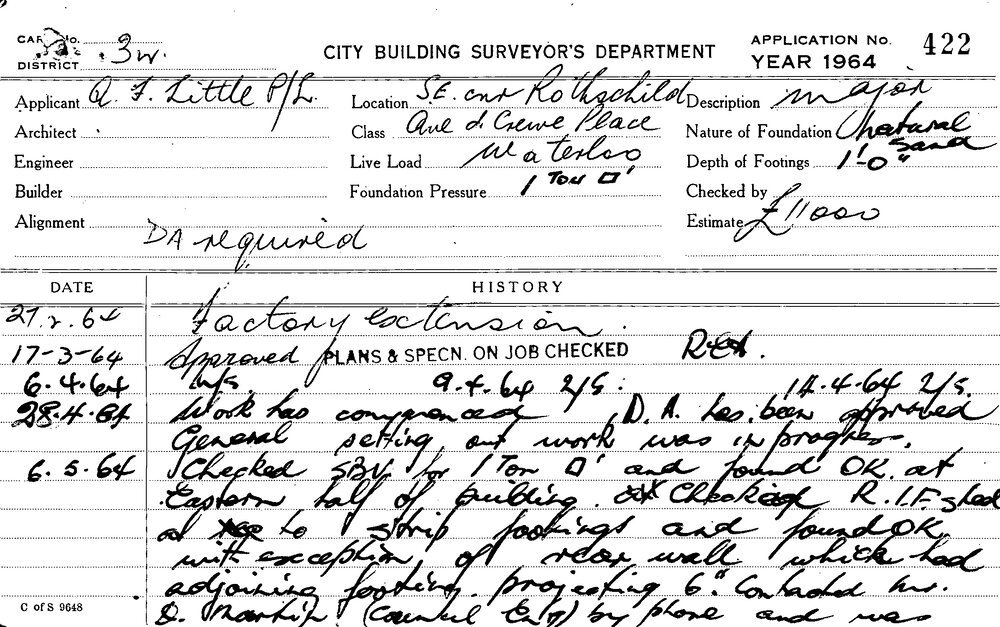 CARD No.
DISTRICT 3W.
CITY BUILDING SURVEYOR'S DEPARTMENT
APPLICATION No. 422
YEAR 1964
Applicant Q. F. Little P/L.
Location S.E. cnr Rothschild
Description major
Architect
Class Ave & Crewe Place
Nature of Foundation natural sand
Engineer
Live Load Waterloo
Depth of Footings 1'-0"
Builder
Foundation Pressure 1 Ton □'
Checked by
Alignment
Estimate £11000
DA required
DATE HISTORY
27.2.64 Factory extension.
17-3-64 Approved PLANS & SPECN. ON JOB CHECKED
6.4.64 N/S. 9.4.64 2/S. 14.4.64 2/S.
28.4.64 Work has commenced, D.A. has been approved
General setting out work was in progress.
6.5.64 Checked SBV for 1 Ton □' and found OK at
Eastern half of building. Checked R.I.F. sted
at to strip footings and found OK
with exception of rear wall which had
adjoining footing projecting 6". Contacted Mr.
D. Martin (Council Eng) by phone and was
C of S 9648